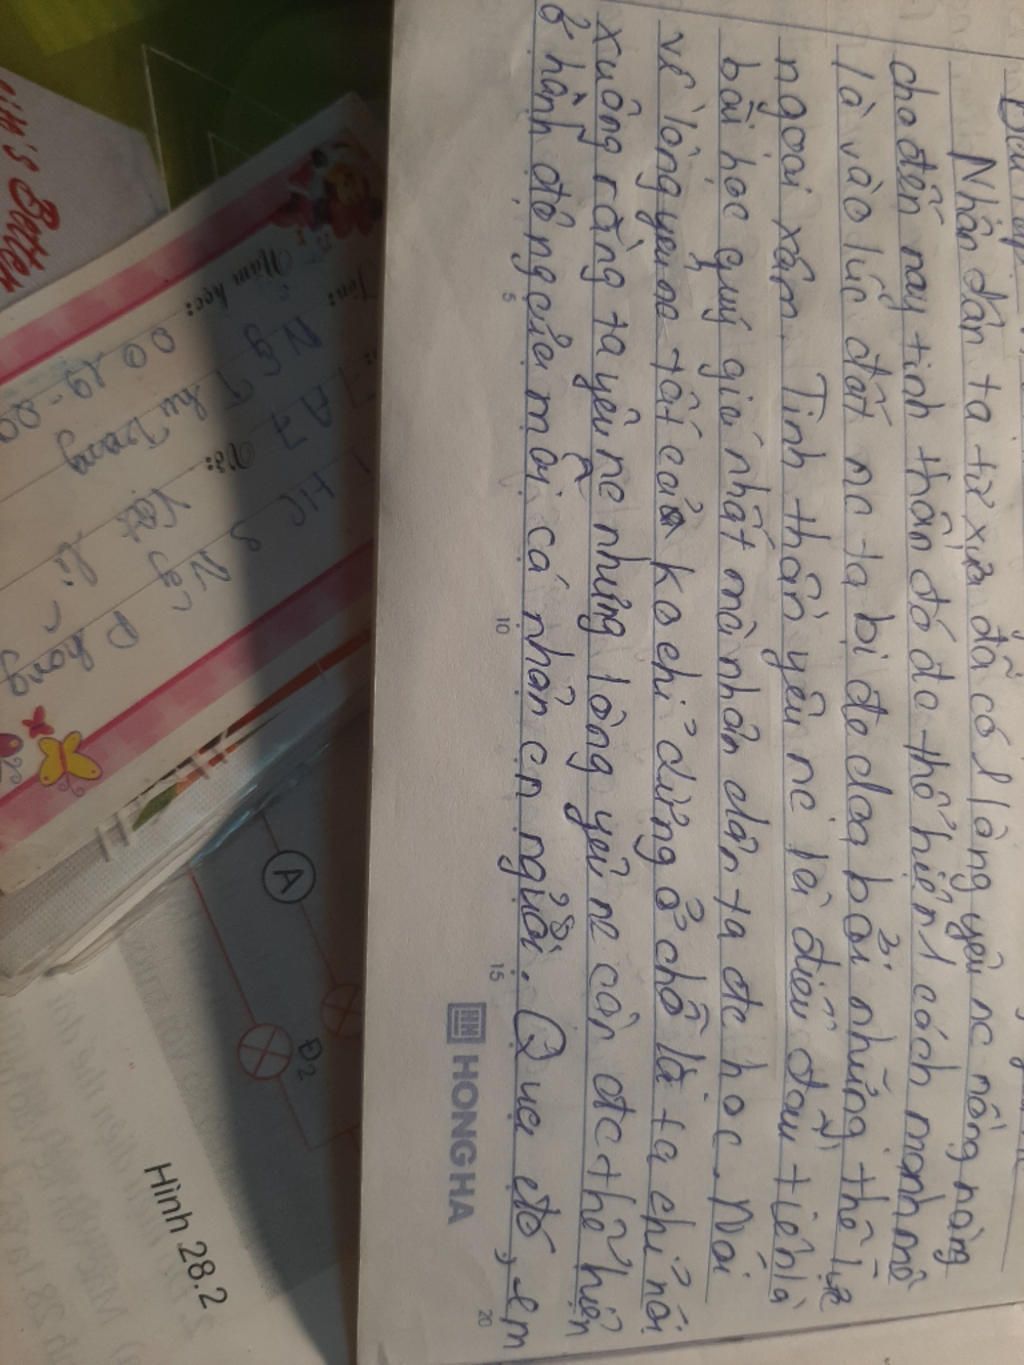 Nhân dân ta từ xưa đã có 1 lòng yêu nc nồng nàng
cho đến nay tinh thần đó đc thể hiện 1 cách mạnh mẽ
là vào lúc đất nc ta bị đe doạ bởi những thế lực
ngoại xâm. Tinh thần yêu nc là điều đầu tiên là
bài học quý giá nhất mà nhân dân ta đc học. Nói
về lòng yêu nc tất cả ko chỉ dừng ở chỗ là ta chỉ nói
xuông rằng ta yêu nc những lòng yêu nc cần đc thể hiện
ở hành động của mỗi cá nhân cn người. Qua đó, em
5
10
15
20
HN HONG HA
Better
Năm học:
Tên:
Ng Thu Trang
A7
Vở:
Vật lí
THC
Ng
Phong
A
Đ2
Hình 28.2